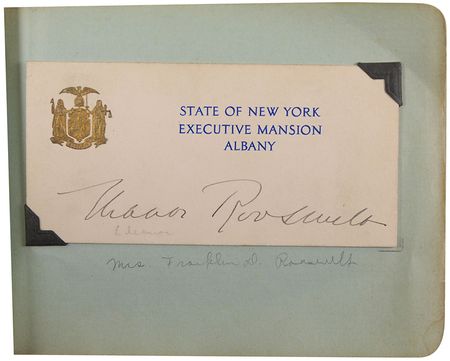 STATE OF NEW YORK
EXECUTIVE MANSION
ALBANY
Eleanor Roosevelt
Eleanor
Mrs. Franklin D. Roosevelt